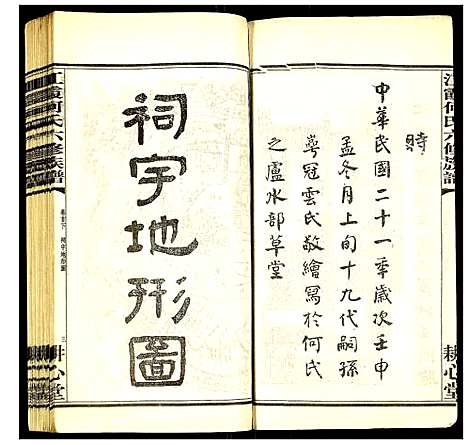 江霞何氏六修族譜
時
中華民國二十一年歲次壬申
孟冬月上旬十九代嗣孫
萼冠雲氏敬繪寫於何氏
之廬水部草堂
耕心堂
祠宇地形圖
江霞何氏六修族譜
卷首下
耕心堂